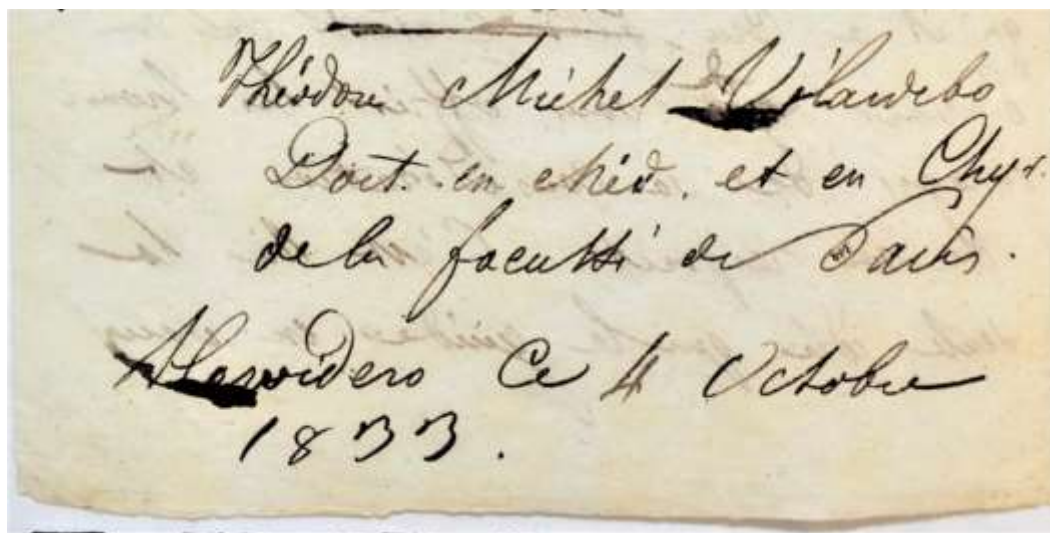 Théodore Michel Vilardebo
Doct. en Méd. et en Chyr.
de la faculté de Paris.
Ce 4 Octobre
1833.